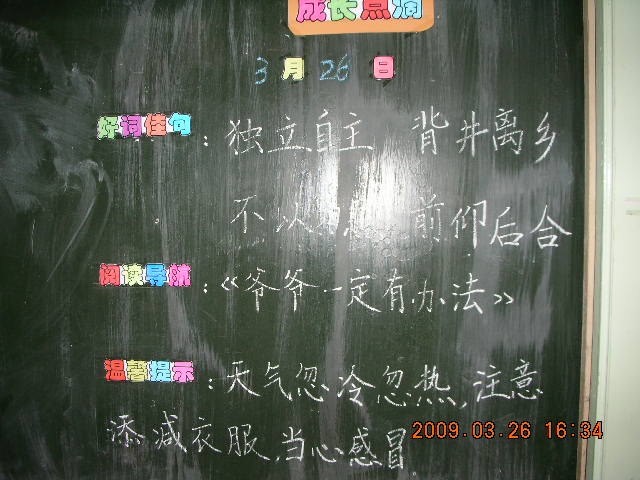 成长点滴
3月26日
好词佳句：独立自主 背井离乡
不以为然 前仰后合
阅读导航：《爷爷一定有办法》
温馨提示：天气忽冷忽热,注意
添减衣服,当心感冒.
2009.03.26 16:34